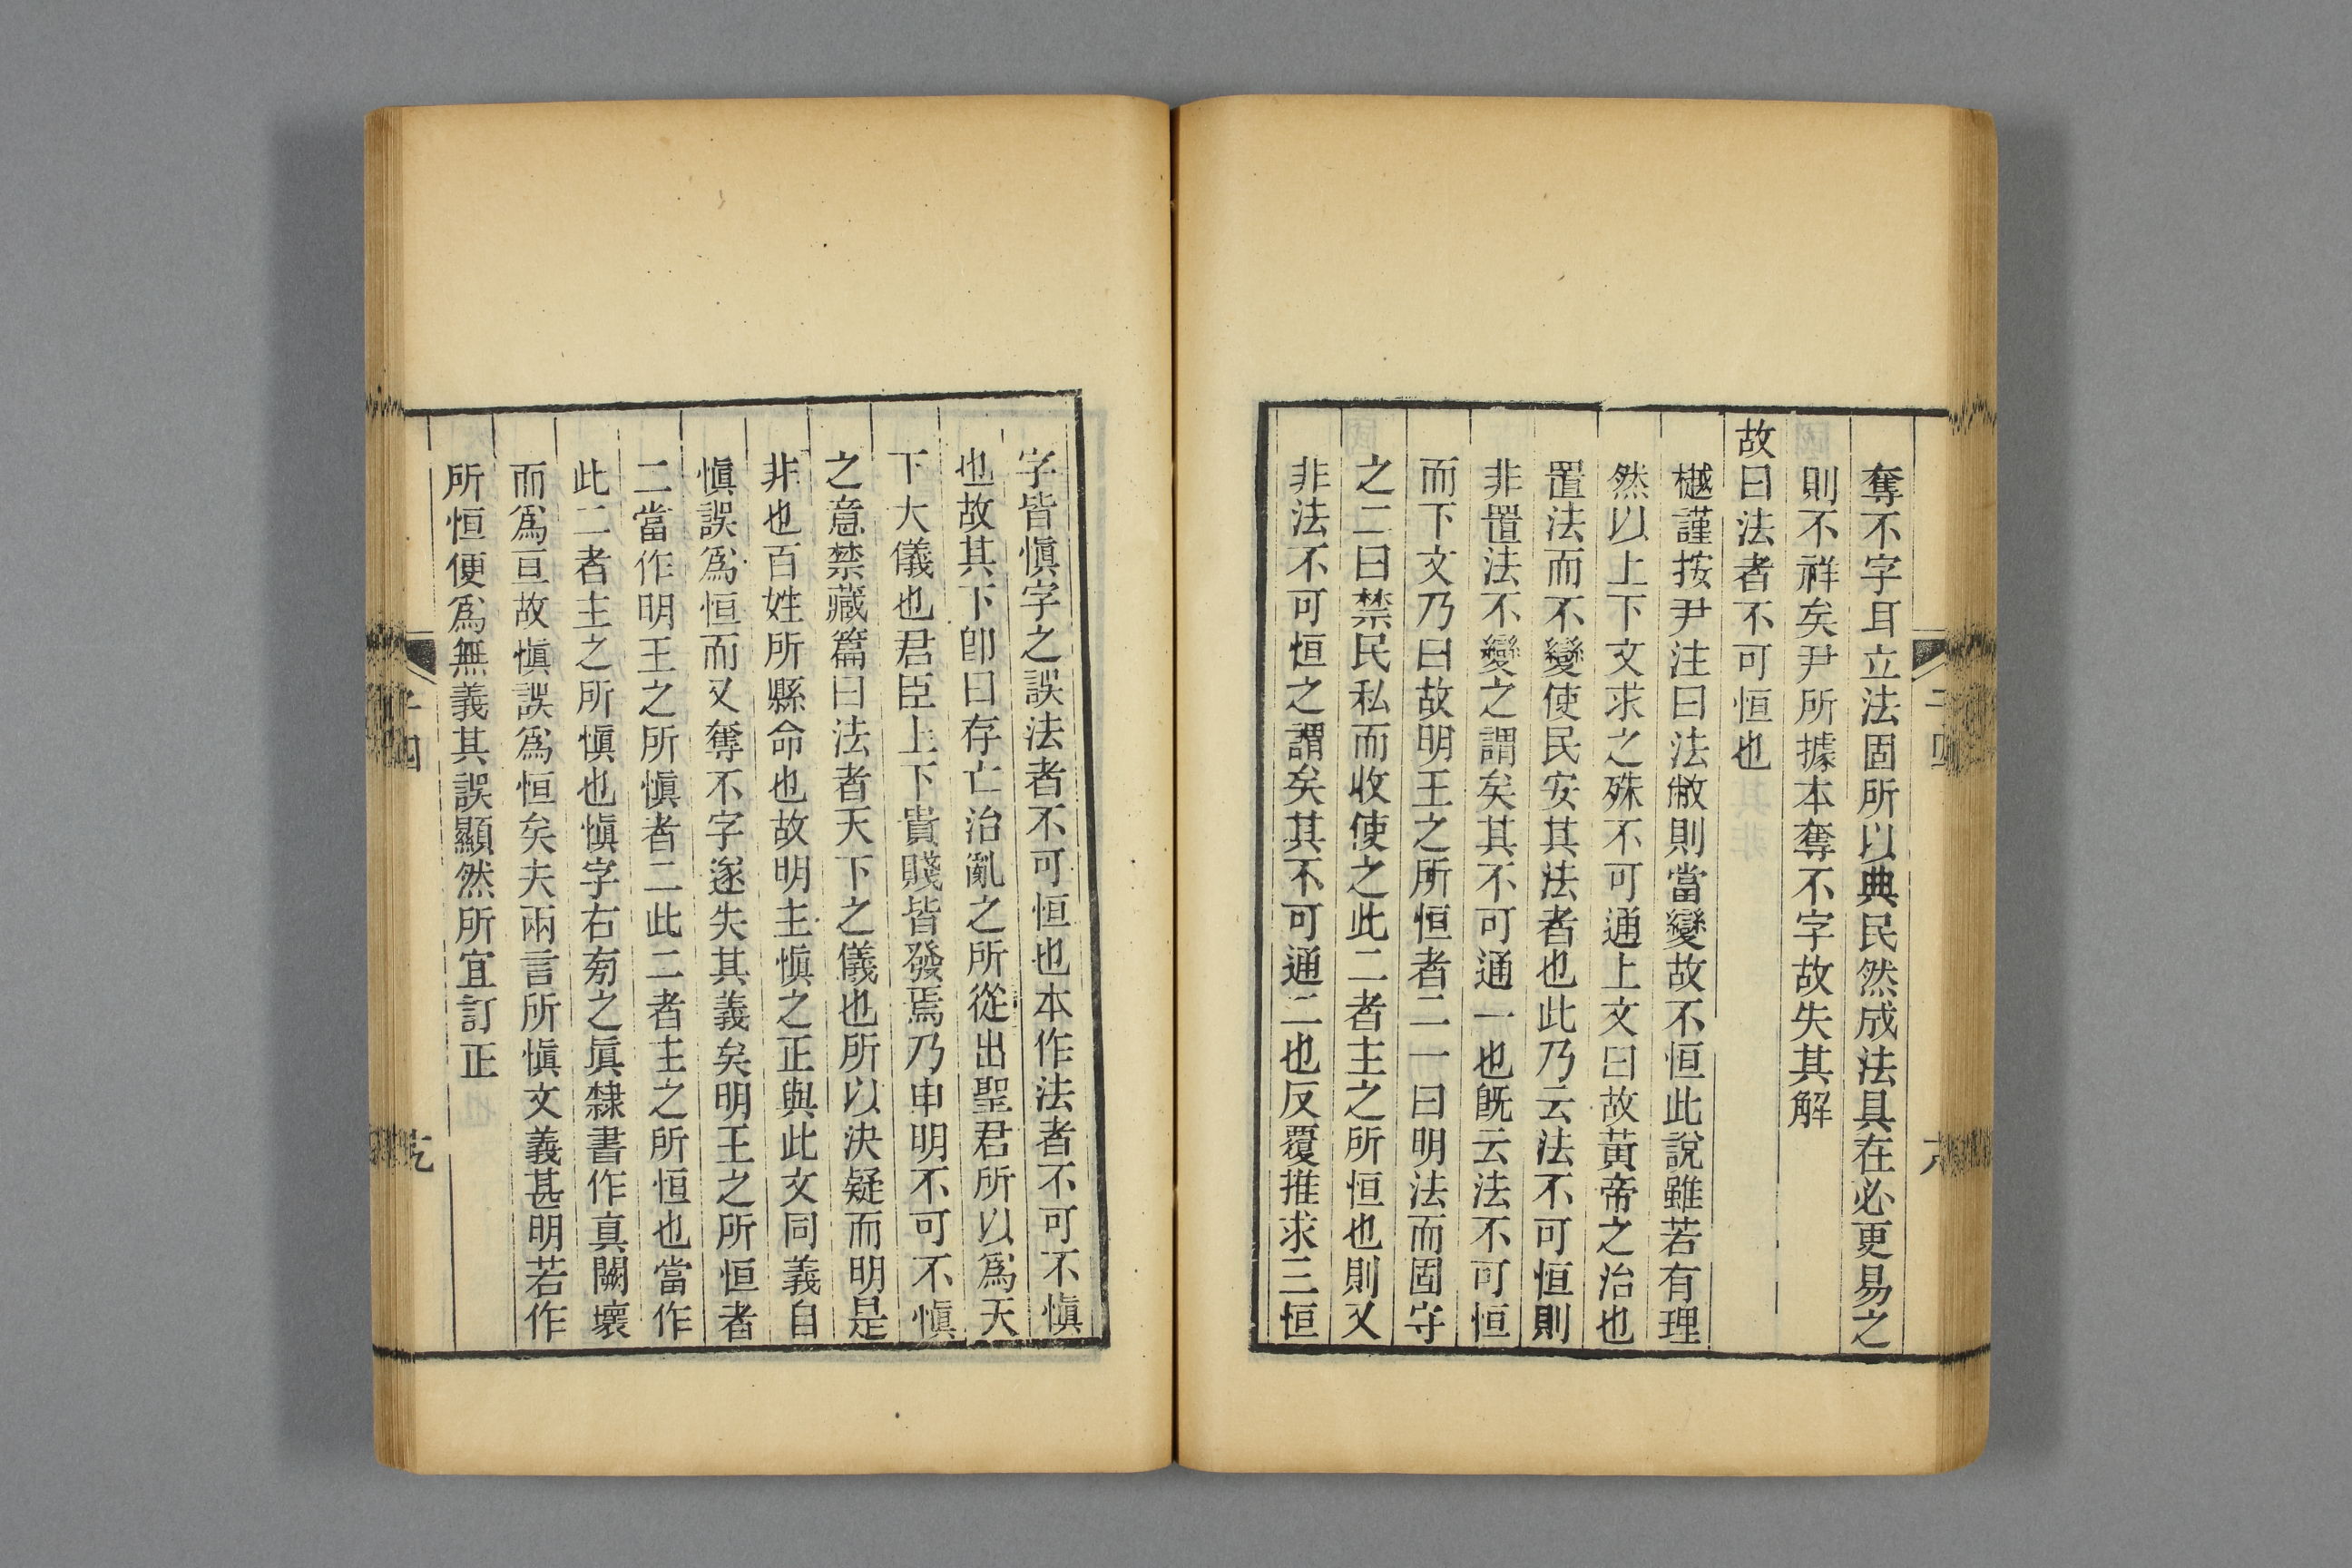 奪不字耳立法固所以典民然成法具在必更易之
則不祥矣尹所據本奪不字故失其解
故曰法者不可恒也
樾謹按尹注曰法敝則當變故不恒此說雖若有理
然以上下文求之殊不可通上文曰故黃帝之治也
置法而不變使民安其法者也此乃云法不可恒則
非置法不變之謂矣其不可通一也既云法不可恒
而下文乃曰故明王之所恒者二一曰明法而固守
之二曰禁民私而收使之此二者主之所恒也則又
非法不可恒之謂矣其不可通二也反覆推求三恒
字皆慎字之誤法者不可恒也本作法者不可不慎
也故其下卽曰存亡治亂之所從出聖君所以爲天
下大儀也君臣上下貴賤皆發焉乃申明不可不慎
之意禁藏篇曰法者天下之儀也所以決疑而明是
非也百姓所縣命也故明主慎之正與此文同義自
慎誤爲恒而又奪不字遂失其義矣明王之所恒者
二當作明王之所慎者二此二者主之所恒也當作
此二者主之所慎也慎字右㫄之眞隸書作真闕壞
而爲亘故慎誤爲恒矣夫兩言所慎文義甚明若作
所恒便爲無義其誤顯然所宜訂正